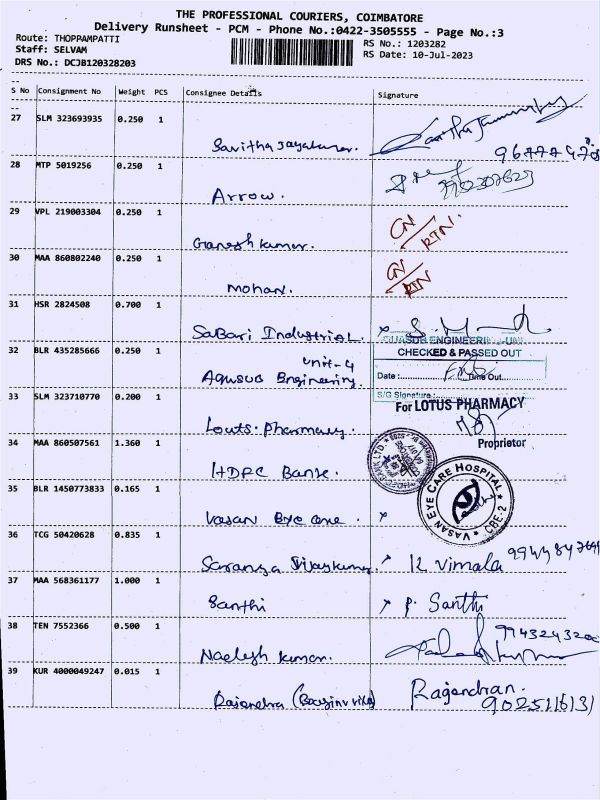 THE PROFESSIONAL COURIERS, COIMBATORE
Delivery Runsheet - PCM - Phone No.:0422-3505555 - Page No.:3
Route: THOPPAMPATTI
RS No.: 1203282
Staff: SELVAM
RS Date: 10-Jul-2023
DRS No.: DCJB120328203
S No Consignment No Weight PCS Consignee Details Signature
27 SLM 323693935 0.250 1
Savitha Jayakumar.
28 MTP 5019256 0.250 1
Arrow.
29 VPL 219003304 0.250 1
CN/RTN.
Ganesh kumar.
30 MAA 860802240 0.250 1
CN/RTN
mohan.
31 HSR 2824508 0.700 1
Sabari Industrial.
32 BLR 435285666 0.250 1
CHECKED & PASSED OUT
unit-4
Aqusub Engineering.
Date: Time Out
33 SLM 323710770 0.200 1
S/G Signature:
For LOTUS PHARMACY
Louts. Pharmacy.
Proprietor
34 MAA 860507561 1.360 1
HDFC Bank.
35 BLR 1450773833 0.165 1
VASAN EYE CARE HOSPITAL
CBE-2
Vasan Eye care.
36 TCG 50420628 0.835 1
Saranya Vijaykumar. K Vimala
37 MAA 568361177 1.000 1
Santhi P. Santhi
38 TEN 7552366 0.500 1
9943243200
Naelesh kumar.
39 KUR 4000049247 0.015 1
Rajendran.
Rajendra
9025116131